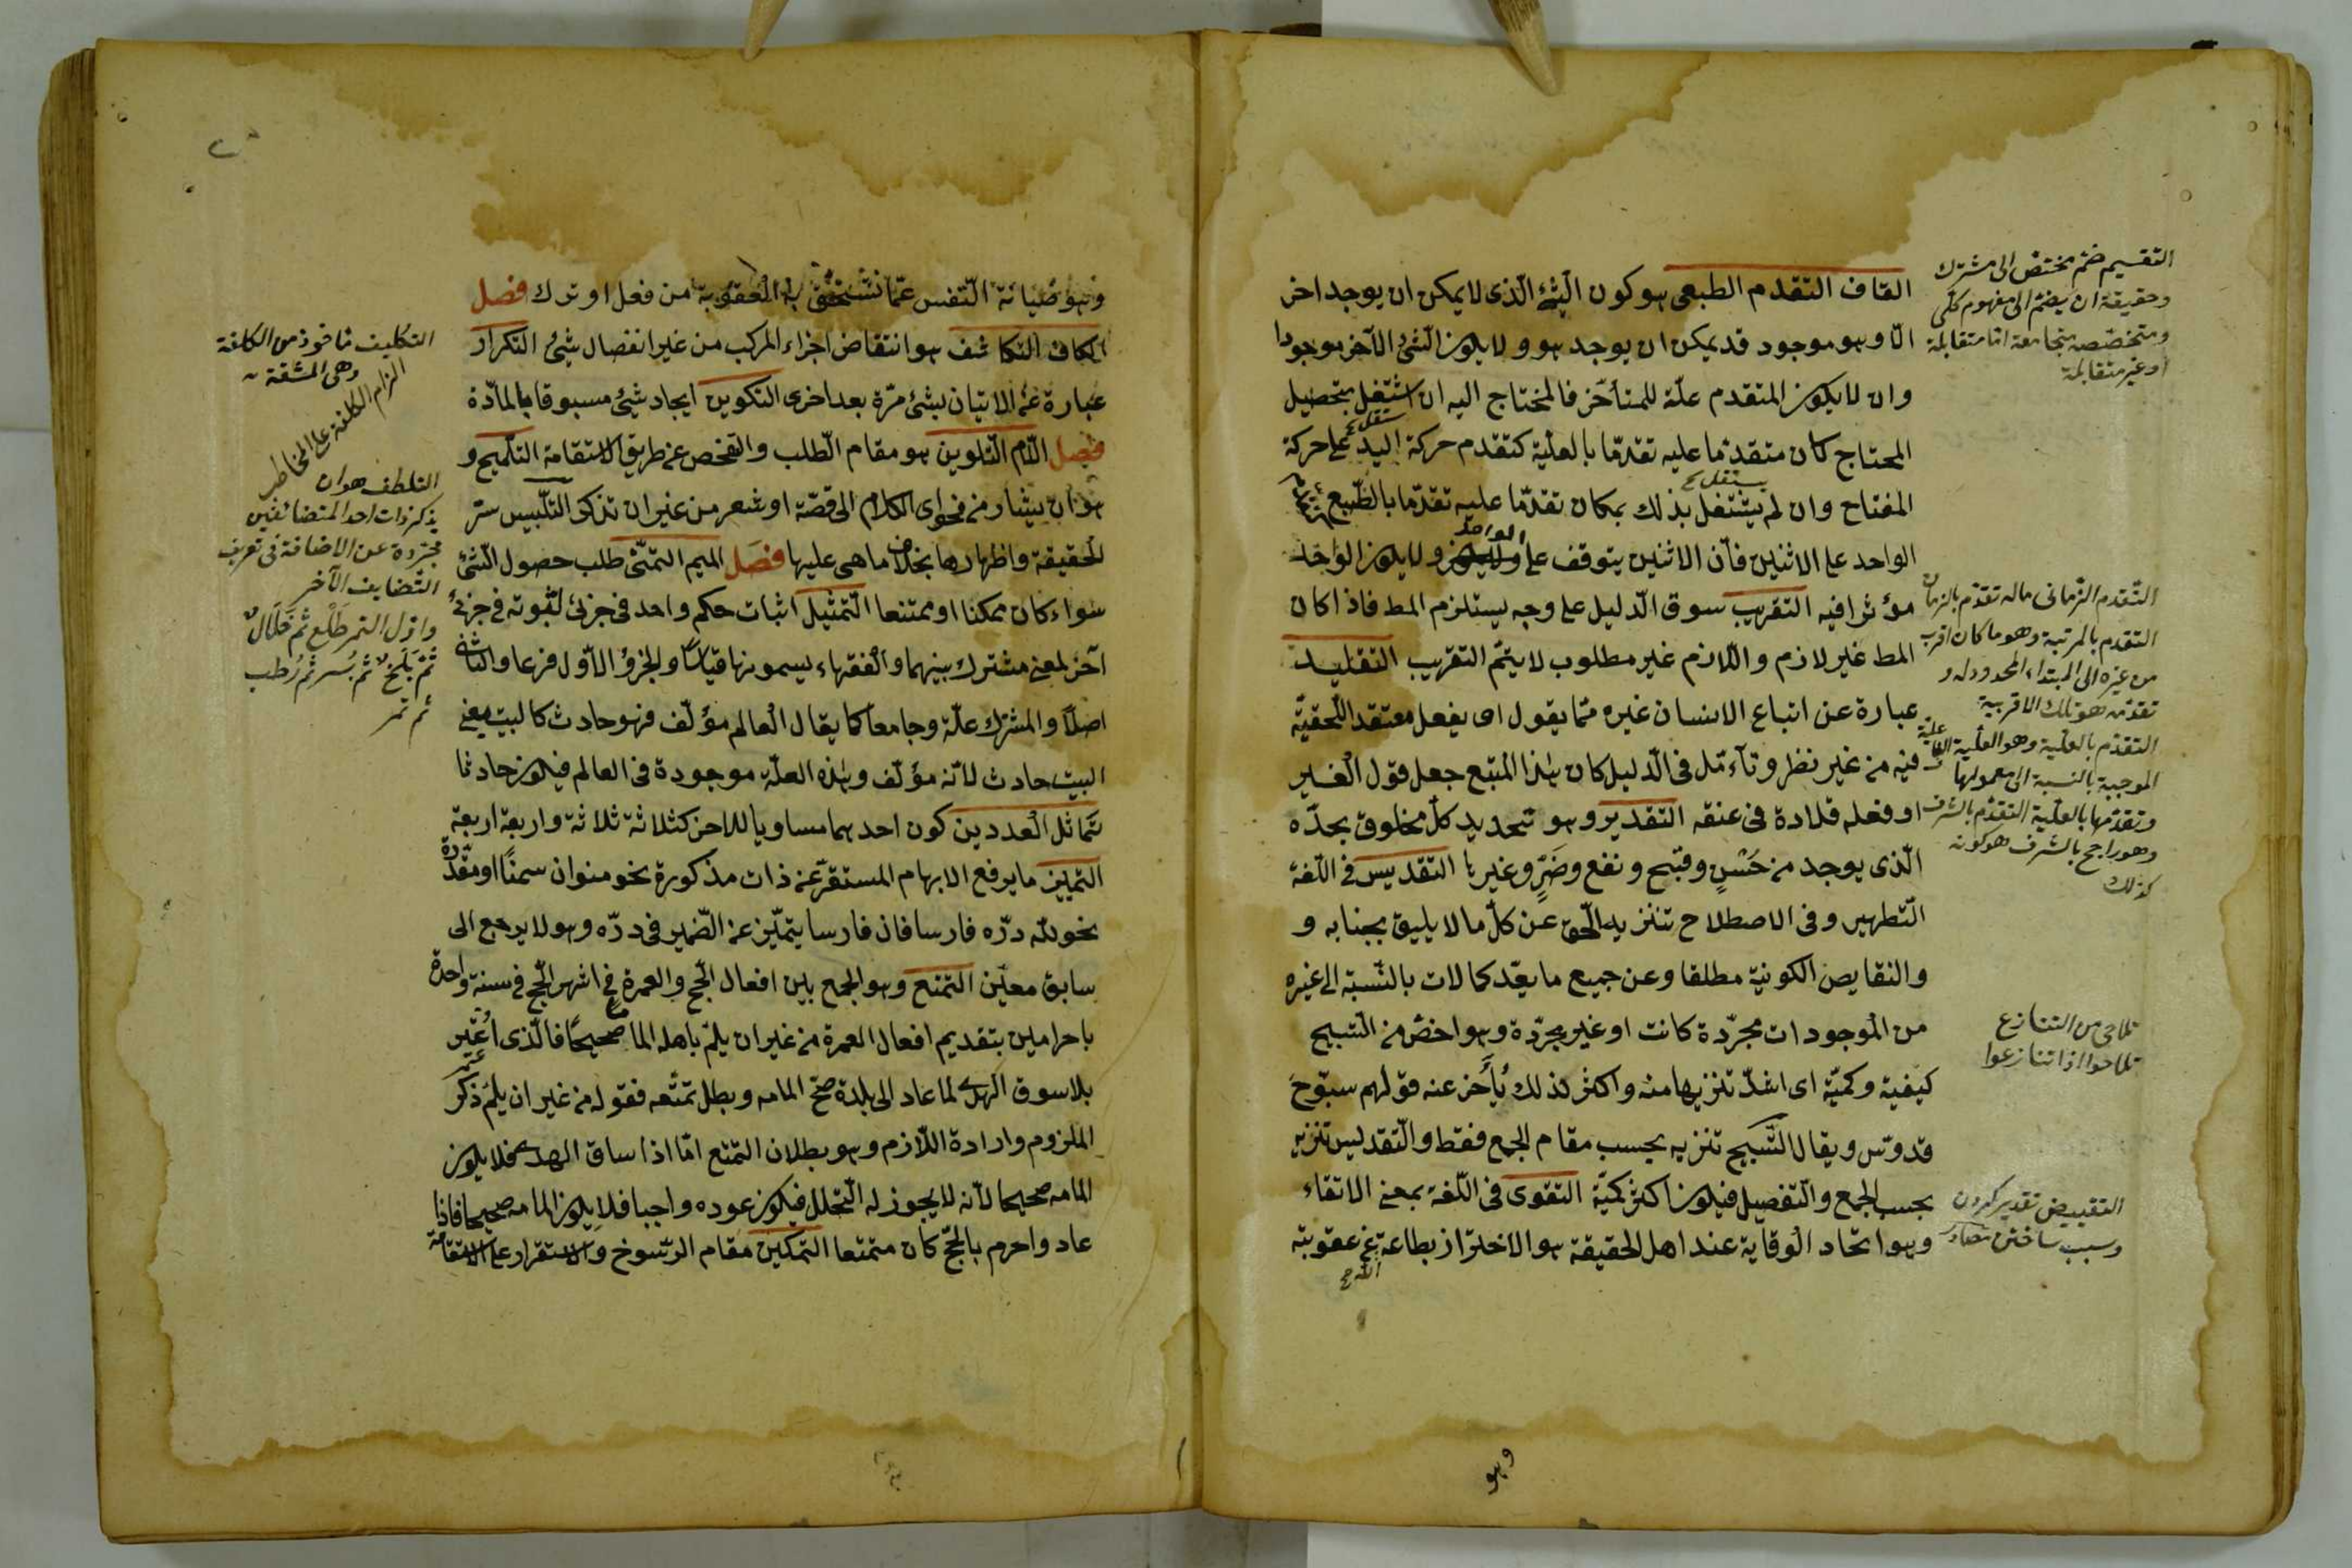 القاف التقدم الطبعى هو كون الشئ الّذى لا يمكن ان يوجد اخر
الّا وهو موجود قد يمكن ان يوجد هو ولا يكون الشئ الآخر موجودا
وان لا يكون المتقدم علّة للمتأخّر فالمحتاج اليه ان اشتغل بتحصيل
المحتاج كان متقدّما عليه تقدّما بالعلّية كتقدم حركة اليد على حركة
المفتاح وان لم يشتغل بذلك بمكان تقدّما عليه تقدّما بالطّبع
الواحد على الاثنين فأنّ الاثنين يتوقف على الواحد ولا يكون الواحد
مؤثرا فيه التقريب سوق الدّليل على وجه يستلزم المط فاذا كان
المط غير لازم واللّازم غير مطلوب لا يتمّ التقريب التقليد
عبارة عن اتباع الانسان غيره ممّا يقول اى يفعل معتقد اللّحقيّة
فيه من غير نظر وتأمّل فى الدّليل كان هذا المتبع جعل قول الغير
او فعله قلادة فى عنقه التقدير وهو تحديد كلّ مخلوق بحدّه
الّذى يوجد من حُسْنٍ وقبح ونفع وضَرٍّ وغيرها التقديس فى اللّغة
التّطهير وفى الاصطلاح تنزيه الحق عن كلّ ما لا يليق بجنابه و
والنقايص الكونيّة مطلقا وعن جميع ما يعّد كمالات بالنّسبة الى غيره
من الموجودات مجرّدة كانت او غير مجرّدة وهو اخصّ من التسبيح
كيفية وكميّة اى اشدّ تنزيها منه واكثر كذلك يُأَخر عنه قولهم سبّوح
قدوّس ويقال التّسبيح تنزيه بحسب مقام الجمع فقط والتّقديس تنزيه
بحسب الجمع والتّفصيل فيكون اكثر كميّة التقوى فى اللّغة بمعنى الاتقاء
وهو اتّحاد الوقاية عند اهل الحقيقة هو الاحتراز بطاعة الله عن عقوبته
وهو
التقسيم ضم مختصّ الى مشترك
وحقيقة ان يضمّ الى مفهوم كلّى
ومتخصّصه متجامعة امّا متقابلة
او غير متقابلة
التّقدم الزّمانى ماله تقدّم بالزمان
التقدم بالمرتبة وهو ما كان اقرب
من غيره الى المبتداء المحدود له و
تقدّمه هو تلك الاقربية
التقدّم بالعلّية وهو العلّية
الموجبة بالنسبة الى معمولها
وتقدّمها بالعلّية التقدّم بالشرف
وهو راجح بالشرف هو كونه
كذلك
تلاحى من التنازع
تلاحوا اذا تنازعوا
التقييض تقدير كردن
وسبب ساختن
وهو صيانة النّفس عمّا تستحق به العقوبة من فعل او ترك فصل
الكاف التكاثف هو انتقاض اجزاء المركب من غير انفصال شئ التكرار
عبارة عن الاتيان بشئ مرّة بعد اخرى التكوين ايجاد شئ مسبوقا بالمادّة
فصل اللّام التّلوين هو مقام الطّلب والتفحص عن طريق الاستقامة التلميح و
هو ان يشار من فحواى الكلام الى قصّة او شعر من غير ان تذكر التّلبيس ستر
الحقيقة واظهارها بخلاف ما هى عليها فصل الميم التمنّى طلب حصول الشئ
سواء كان ممكنا او ممتنعا التّمثيل اثبات حكم واحد فى جزئى لثبوته فى جزئى
آخر لمعنى مشترك بينهما والفقهاء يسمونها قياسًا والجزؤ الاوّل فرعا والثانى
اصلًا والمشترك علّة وجامعا كما يقال العالم مؤلّف فهو حادث كالبيت يعنى
البيت حادث لانّه مؤلّف وهذه العلّة موجودة فى العالم فيكون حادثا
تماثل العددين كون احدهما مساويا للاخر كثلاثة ثلاثة واربعة اربعة
التمييز ما يرفع الابهام المستقرّ عن ذات مذكورة نحو منوان سمنًا او مقدّرة
نحو للّه درّه فارسا فان فارسا يتميّز عن الضّمير فى درّه وهو لا يرجع الى
سابق معيّن التمتع وهو الجمع بين افعال الحّج والعمرة فى اشهر الحّج فى سنة واحدة
باحرامين بتقديم افعال العمرة من غير ان يلمّ باهله الماما صحيحًا فالّذى اعتمر
بلا سوق الهدى لما عاد الى بلدة صحّ المامه وبطل تمتّعه فقوله من غير ان يلمّ ذكر
الملزوم وارادة اللّازم وهو بطلان التمتع امّا اذا ساق الهدى فلا يكون
المامه صحيحا لانّه لا يجوز له التّحلل فيكون عوده واجبا فلا يكون المامه صحيحا فاذا
عاد واحرم بالحجّ كان متمتعا التمكين مقام الرّسوخ والاستقرار على الاستقامة
التكليف مأخوذ من الكلفة
وهى المشقة
الزام الكلفة على المخاطب
التلطف هو ان
يذكر ذات احد المتضائفين
مجرّدة عن الاضافة فى تعريف
التّضايف الآخر
واوّل التمر طَلْع ثم خَلَالٌ
ثمّ بَلَحٌ ثم بُسر ثم رُطب
ثم تمر